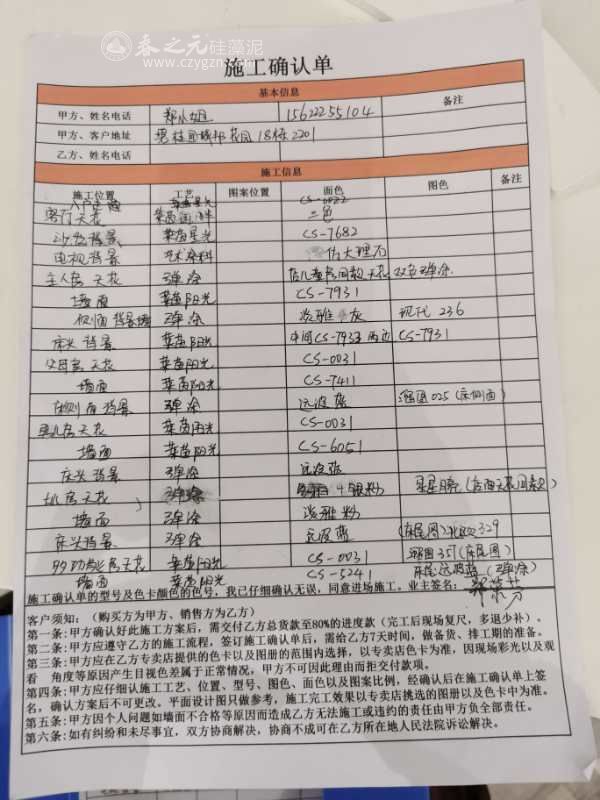 春之元硅藻泥
www.czygzn.com
施工确认单
基本信息
甲方、姓名电话 郑小姐 15622255104 备注
甲方、客户地址 碧桂园城邦花园18栋2201
乙方、姓名电话
施工信息
施工位置 工艺 图案位置 面色 图色 备注
客厅天花 莱茵 二色
沙发背景 莱茵星光 CS-7682
电视背景 艺术涂料 仿大理石
主人房天花 弹涂 天花 双色弹涂
墙面 莱茵阳光 CS-7931
侧面背景墙 弹涂 淡雅灰 现代236
床头背景 莱茵阳光 中间CS-7933 两边CS-7931
父母房天花 莱茵阳光 CS-0031
墙面 莱茵阳光 CS-7411
床侧面背景 弹涂 远波蓝 025(床侧面)
天花 莱茵阳光 CS-0031
墙面 莱茵阳光 CS-6051
床头背景 弹涂 远波蓝
天花 弹涂 银粉
墙面 弹涂 淡雅粉
床头背景 弹涂 远波蓝 (床尾图) 329
多功能房天花 莱茵阳光 CS-0031 357(床尾图)
墙面 莱茵阳光 CS-5241 床尾远波蓝(弹涂)
施工确认单的型号及色卡颜色的色号,我已仔细确认无误,同意进场施工。业主签名:
客户须知:(购买方为甲方、销售方为乙方)
第一条:甲方确认好此施工方案后,需交付乙方总货款至80%的进度款(完工后现场复尺,多退少补)。
第二条:甲方应遵守乙方的施工流程,签订施工确认单后,需给乙方7天时间,做备货、排工期的准备。
第三条:甲方应在乙方专卖店提供的色卡以及图册的范围内选择,以专卖店色卡为准,因现场彩光以及观
看 角度等原因产生目视色差属于正常情况,甲方不可因此理由而拒交付款项。
第四条:甲方应仔细认施工工艺、位置、型号、图色、面色以及图案比例,经确认后在施工确认单上签
名,确认方案后不可更改。平面设计图只做参考,施工完工效果以专卖店挑选的图册以及色卡中为准。
第五条:甲方因个人问题如墙面不合格等原因而造成乙方无法施工或违约的责任由甲方负全部责任。
第六条:如有纠纷和未尽事宜,双方协商解决,协商不成可在乙方所在地人民法院诉讼解决。